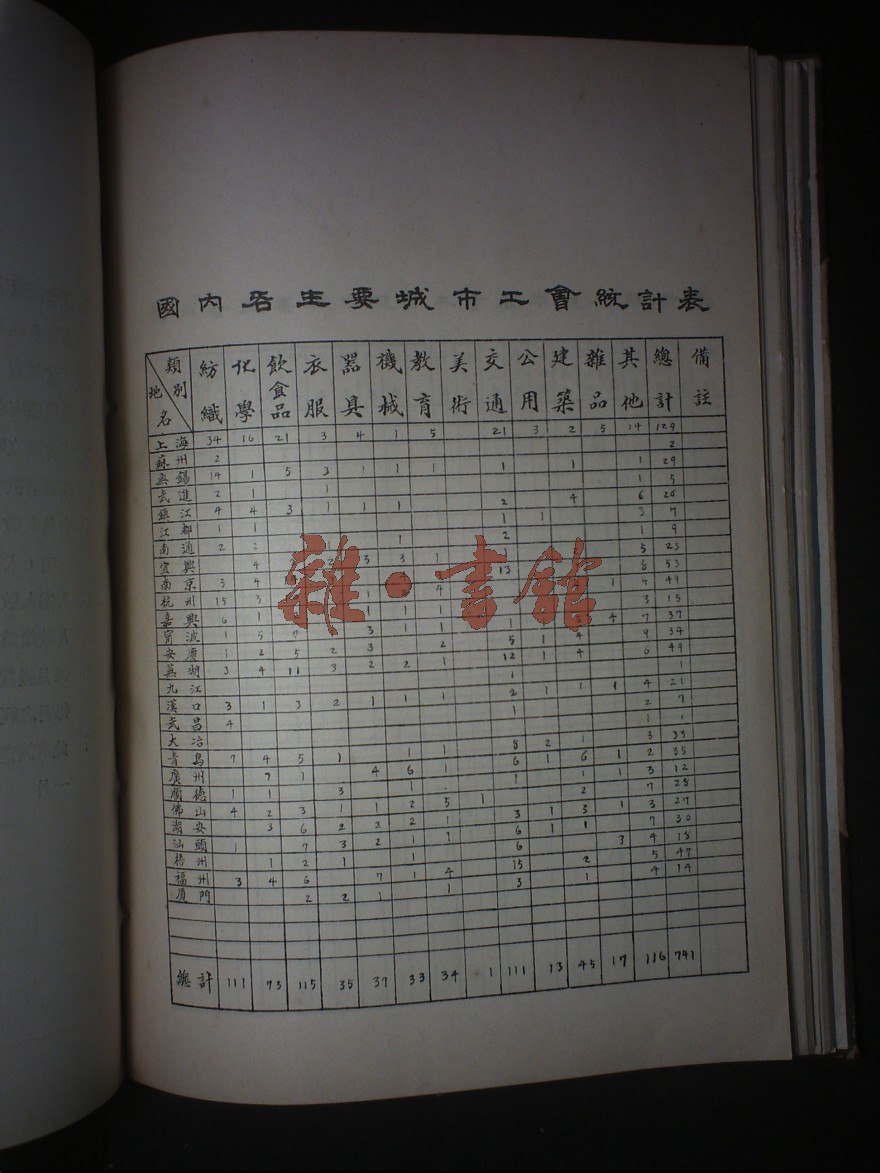 國內各主要城市工會統計表
類別 地名 紡織 化學 飲食品 衣服 器具 機械 教育 美術 交通 公用 建築 雜品 其他 總計 備註
上海 34 16 21 3 4 1 5 21 3 2 5 14 129
蘇州 2 2
無錫 14 1 5 3 1 1 1 1 1 1 29
武進 2 1 1 1 5
鎮江 4 4 3 1 1 1 2 4 6 26
江都 1 1 1 1 3 7
南通 2 2 1 1 2 1 9
宜興 4 2 3 3 1 1 5 23
南京 3 4 4 13 6 53
杭州 15 3 1 1 4 49
嘉興 6 1 1 1 1 3 15
寧波 1 5 7 3 1 1 1 3 4 7 37
安慶 1 2 5 2 3 2 5 1 4 9 34
蕪湖 3 4 11 3 2 2 1 12 1 4 6 49
九江 1 1
漢口 3 1 3 2 1 1 1 2 1 1 1 4 21
武昌 4 1 2 7
大冶 1 1
青島 7 4 5 1 1 1 8 2 1 3 33
廣州 7 1 4 6 1 6 1 6 1 2 35
順德 1 1 3 1 1 1 1 3 12
佛山 4 2 3 1 1 2 5 1 2 7 28
潮安 3 6 2 2 2 1 3 1 3 1 3 27
汕頭 1 7 3 2 1 1 6 1 1 7 30
梧州 1 2 1 1 6 3 4 18
福州 3 4 6 7 1 4 15 2 5 47
廈門 2 2 1 1 3 1 4 14
總計 111 73 115 35 37 33 34 1 111 13 45 17 116 741
雜·書館